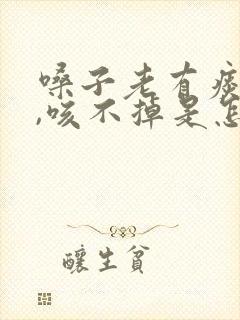 嗓子老有痰
,咳不掉是怎
醸生貧